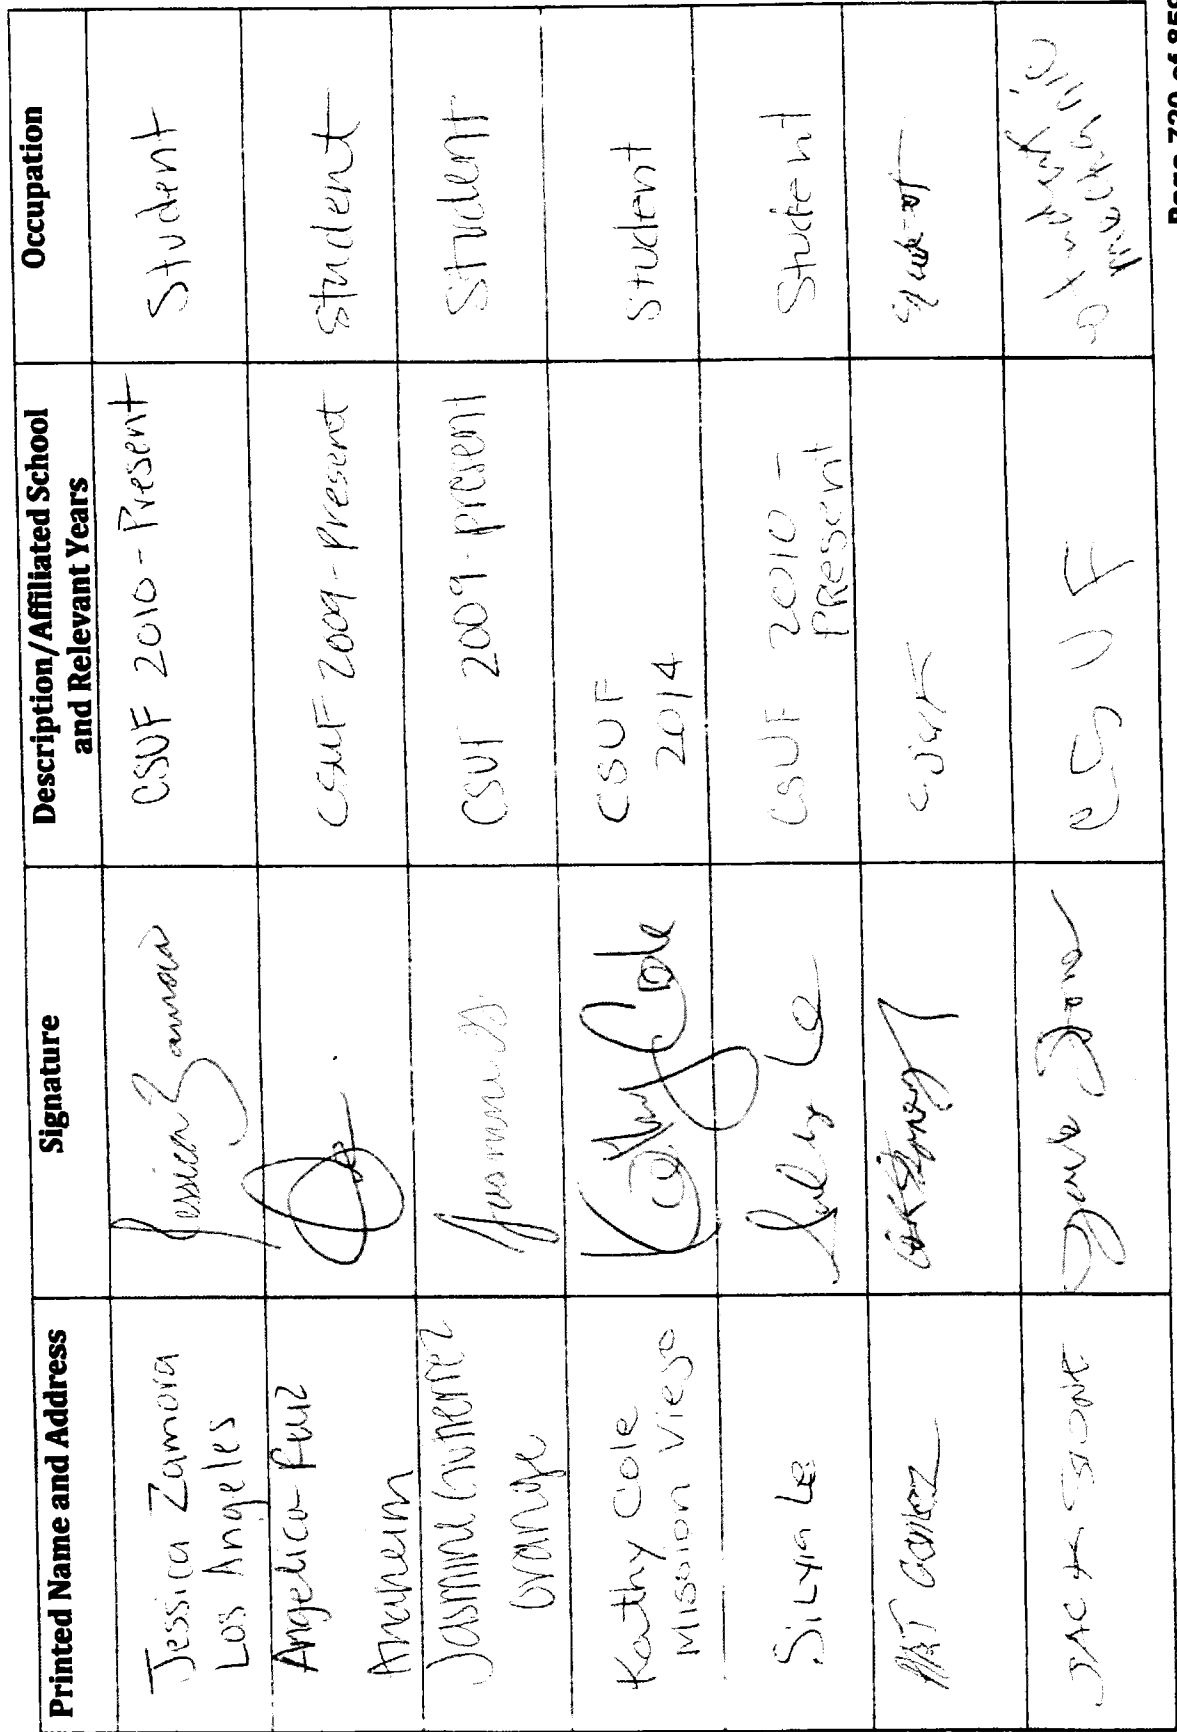 Printed Name and Address Signature Description/Affiliated School and Relevant Years Occupation
Jessica Zamora
Los Angeles
Jessica Zamora
CSUF 2010-Present
Student
Angelica Ruiz
Anaheim
CSUF 2009-Present
Student
Jasmine Gutierrez
Orange
CSUF 2009-present
Student
Kathy Cole
Mission Viejo
Kathy Cole
CSUF
2014
Student
SiLvia Le
Le
CSUF 2010 -
PRESENT
Student
ART GOMEZ
CSUF
JACK STONE
Jack Stone
CSUF
student
mechanic